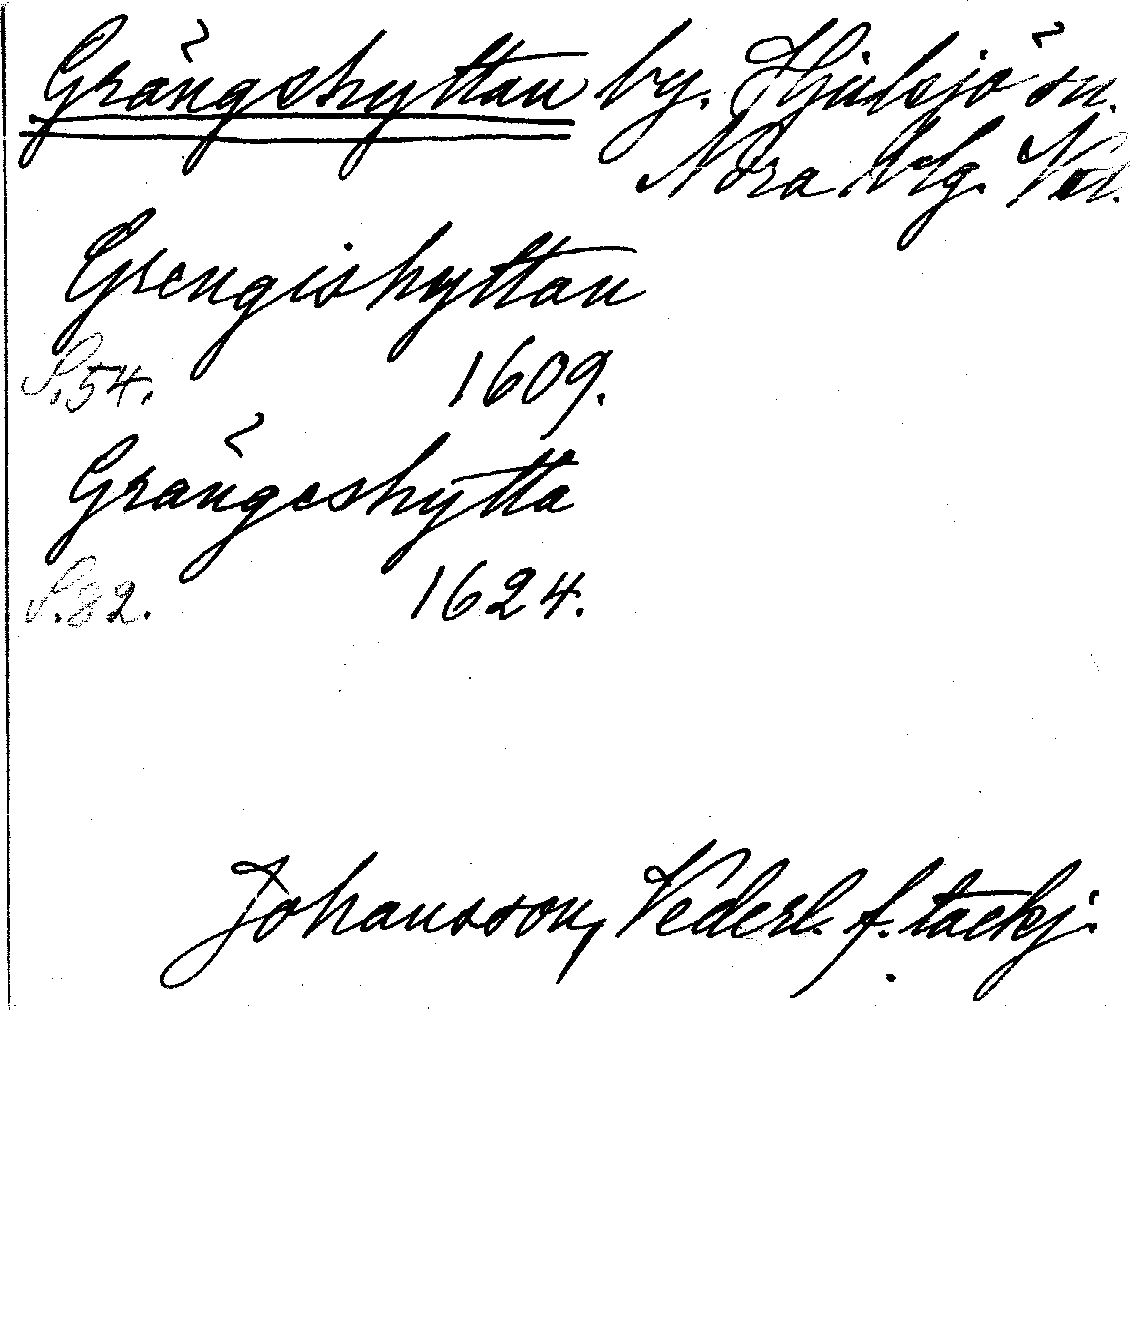 Grängshyttan by. Hjulsjö sn.
Nora
Grengishyttan
S.54. 1609.
Grängeshytta
S.82. 1624.
Johansson, Vederl. f. tackj.